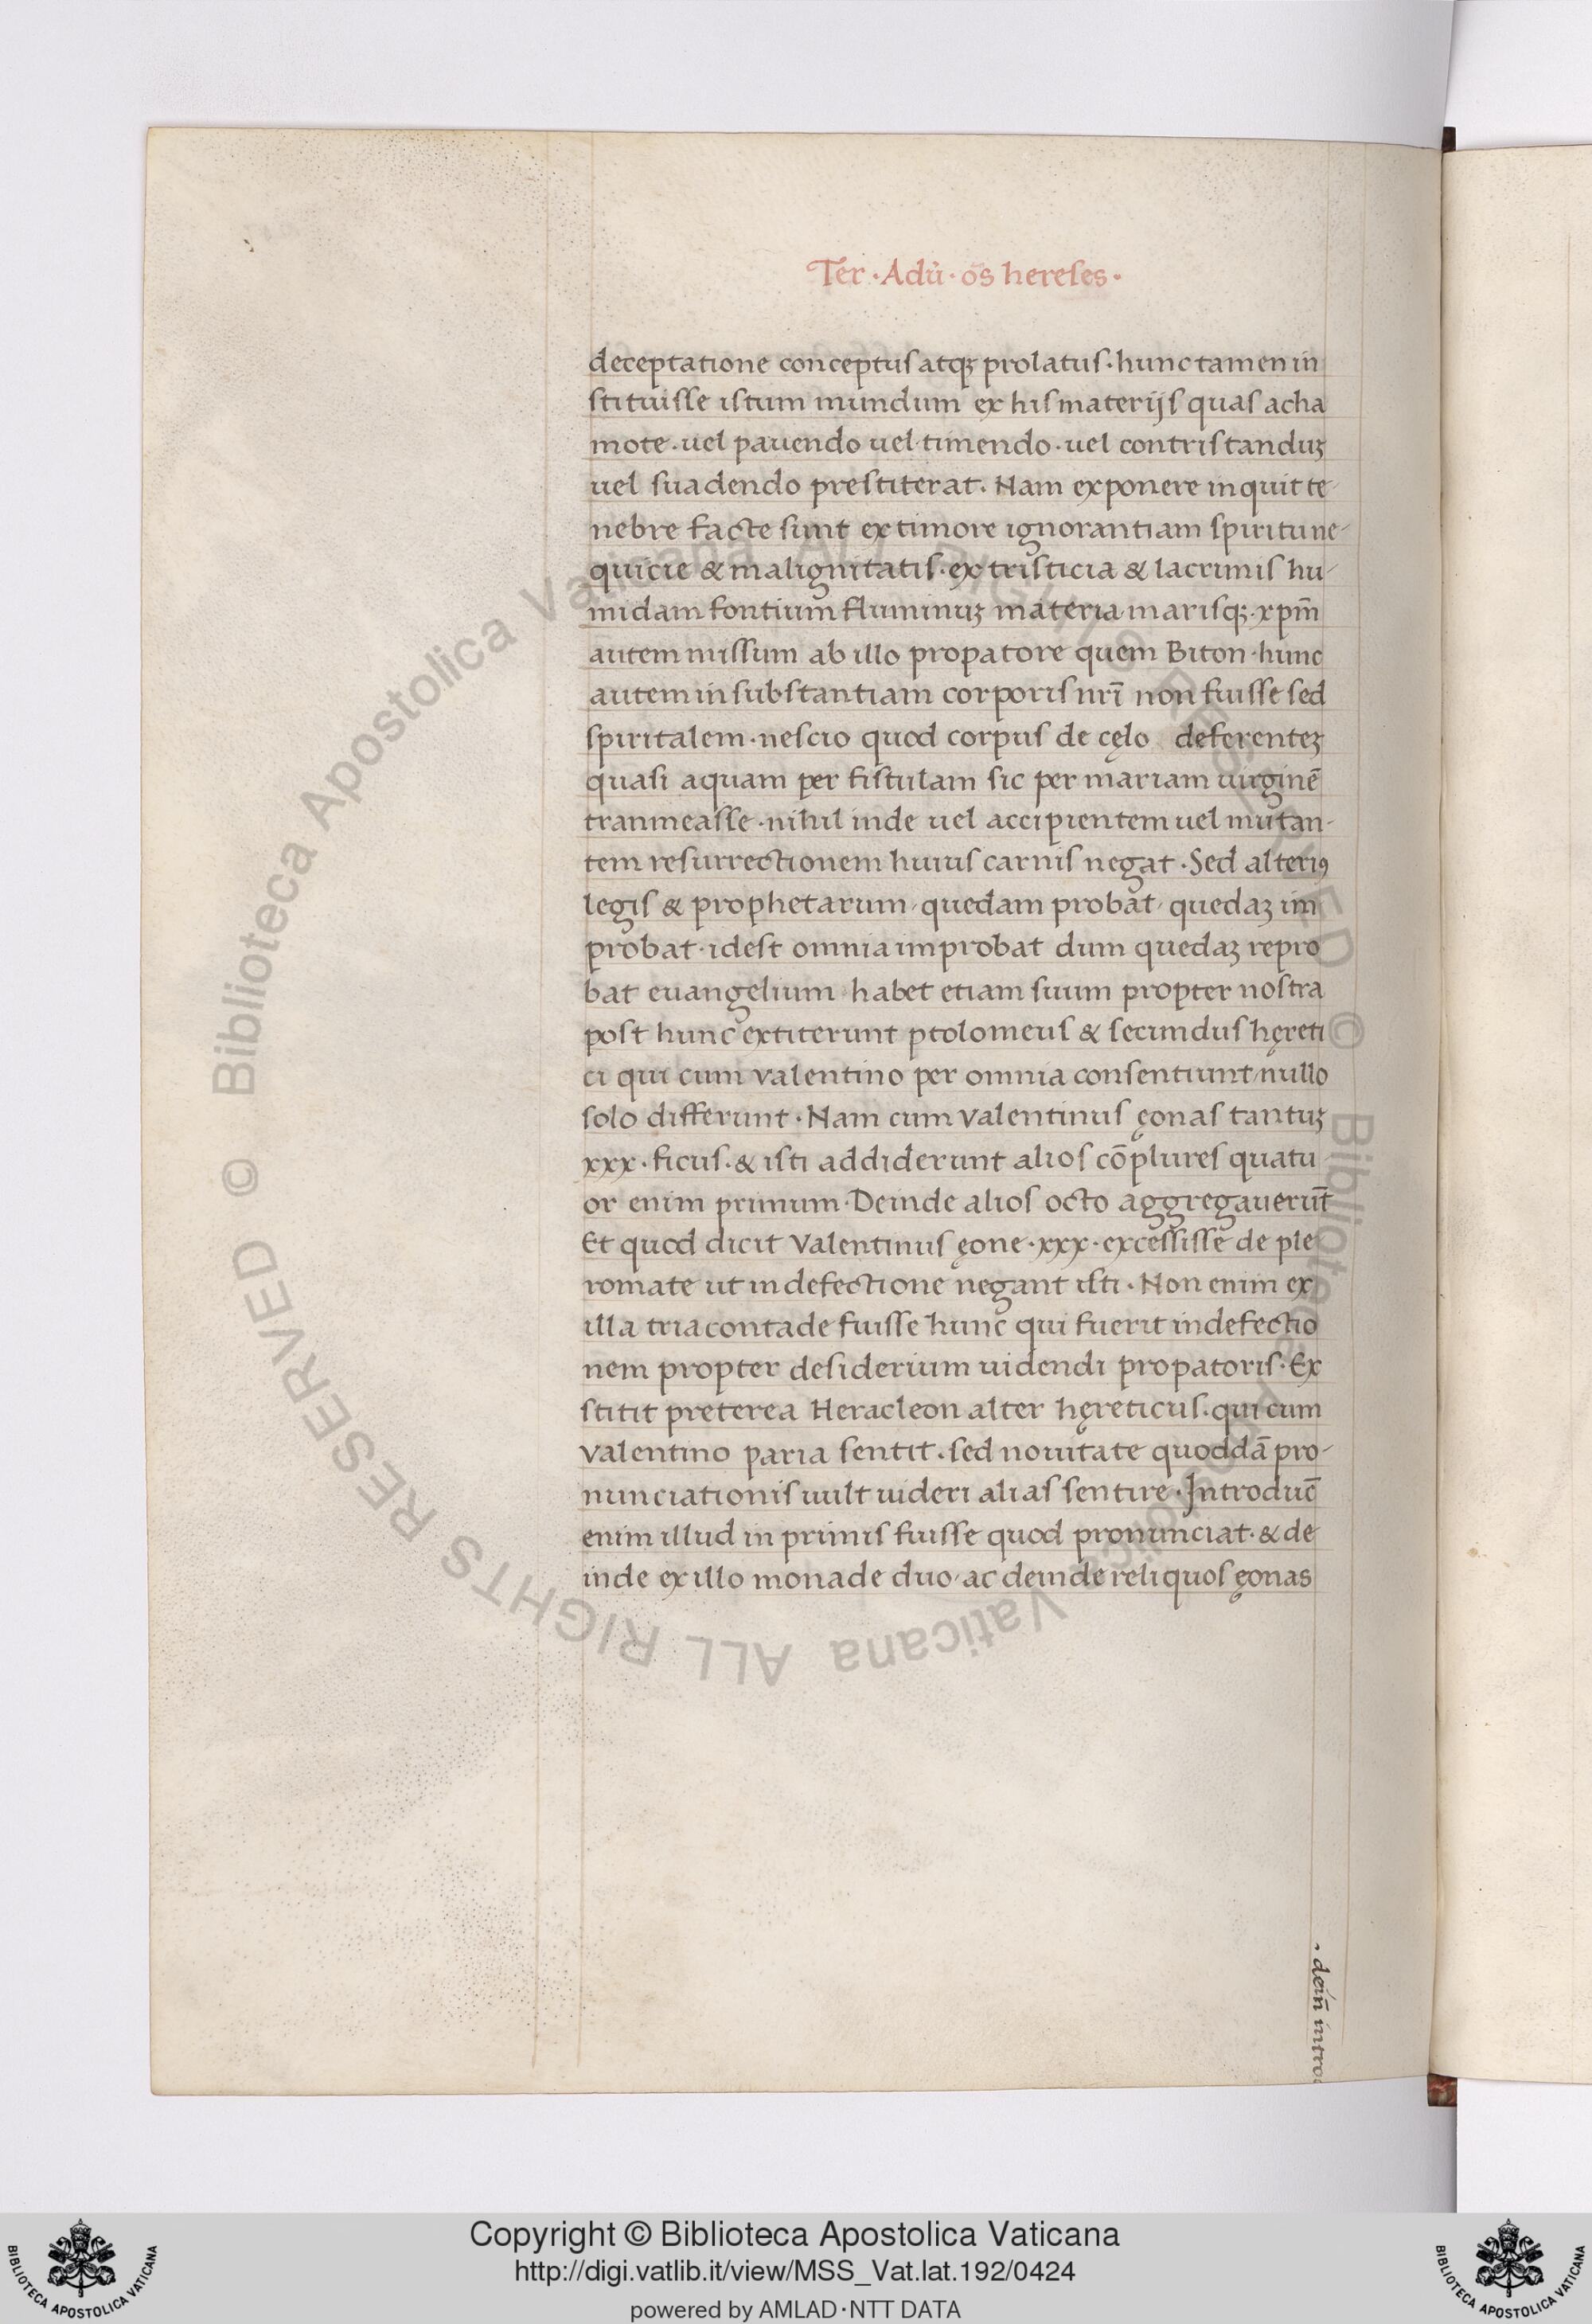 Ter · Adũ · oš hereses ·
deceptatione conceptus atqꝫ prolatus · hunc tamen in
stituisse istum mundum ex his materijs quas acha
mote · uel pauendo uel timendo · uel contristanduꝫ
uel suadendo prestiterat · Nam exponere inquit te-
nebre facte sunt ex timore ignorantiam spiritu ne-
quicie & malignitatis · ex tristicia & lacrimis hu-
midam fontium fluminuꝫ materia marisqꝫ · xpm̄
autem missum ab illo propatore quem Biton · hunc
autem in substantiam corporis nrī non fuisse sed
spiritalem · nescio quod corpus de cęlo deferenteꝫ
quasi aquam per fistulam sic per mariam uirginē
tranmeasse · nihil inde uel accipientem uel mutan-
tem resurrectionem huius carnis negat · Sed alteriꝰ
legis & prophetarum, quedam probat, quedaꝫ im
probat · idest omnia improbat dum quedaꝫ repro
bat euangelium habet etiam suum propter nostra
post hunc extiterunt ptolomeus & secundus hęreti
ci qui cum valentino per omnia consentiunt, nullo
solo differunt · Nam cum valentinus ęonas tantuꝫ
xxx · ficus · & isti addiderunt alios cōplures quatu-
or enim primum · Deinde alios octo aggregauerūt
Et quod dicit Valentinus ęone · xxx · excessisse de ple
romate ut in defectione negant isti · Non enim ex
illa triacontade fuisse hunc qui fuerit indefectio
nem propter desiderium uidendi propatoris · Ex
stitit preterea Heracleon alter hęreticus · qui cum
valentino paria sentit · sed nouitate quoddā pro-
nunciationis uult uideri alias sentire · Introduc̄
enim illud in primis fuisse quod pronunciat · & de
inde ex illo monade duo, ac deinde reliquos ęonas
· dein̄ intro
© Biblioteca Apostolica Vaticana ALL RIGHTS RESERVED © Biblioteca Apostolica Vaticana ALL RIGHTS RESERVED
Copyright © Biblioteca Apostolica Vaticana
http://digi.vatlib.it/view/MSS_Vat.lat.192/0424
powered by AMLAD · NTT DATA
BIBLIOTECA APOSTOLICA VATICANA
BIBLIOTECA APOSTOLICA VATICANA